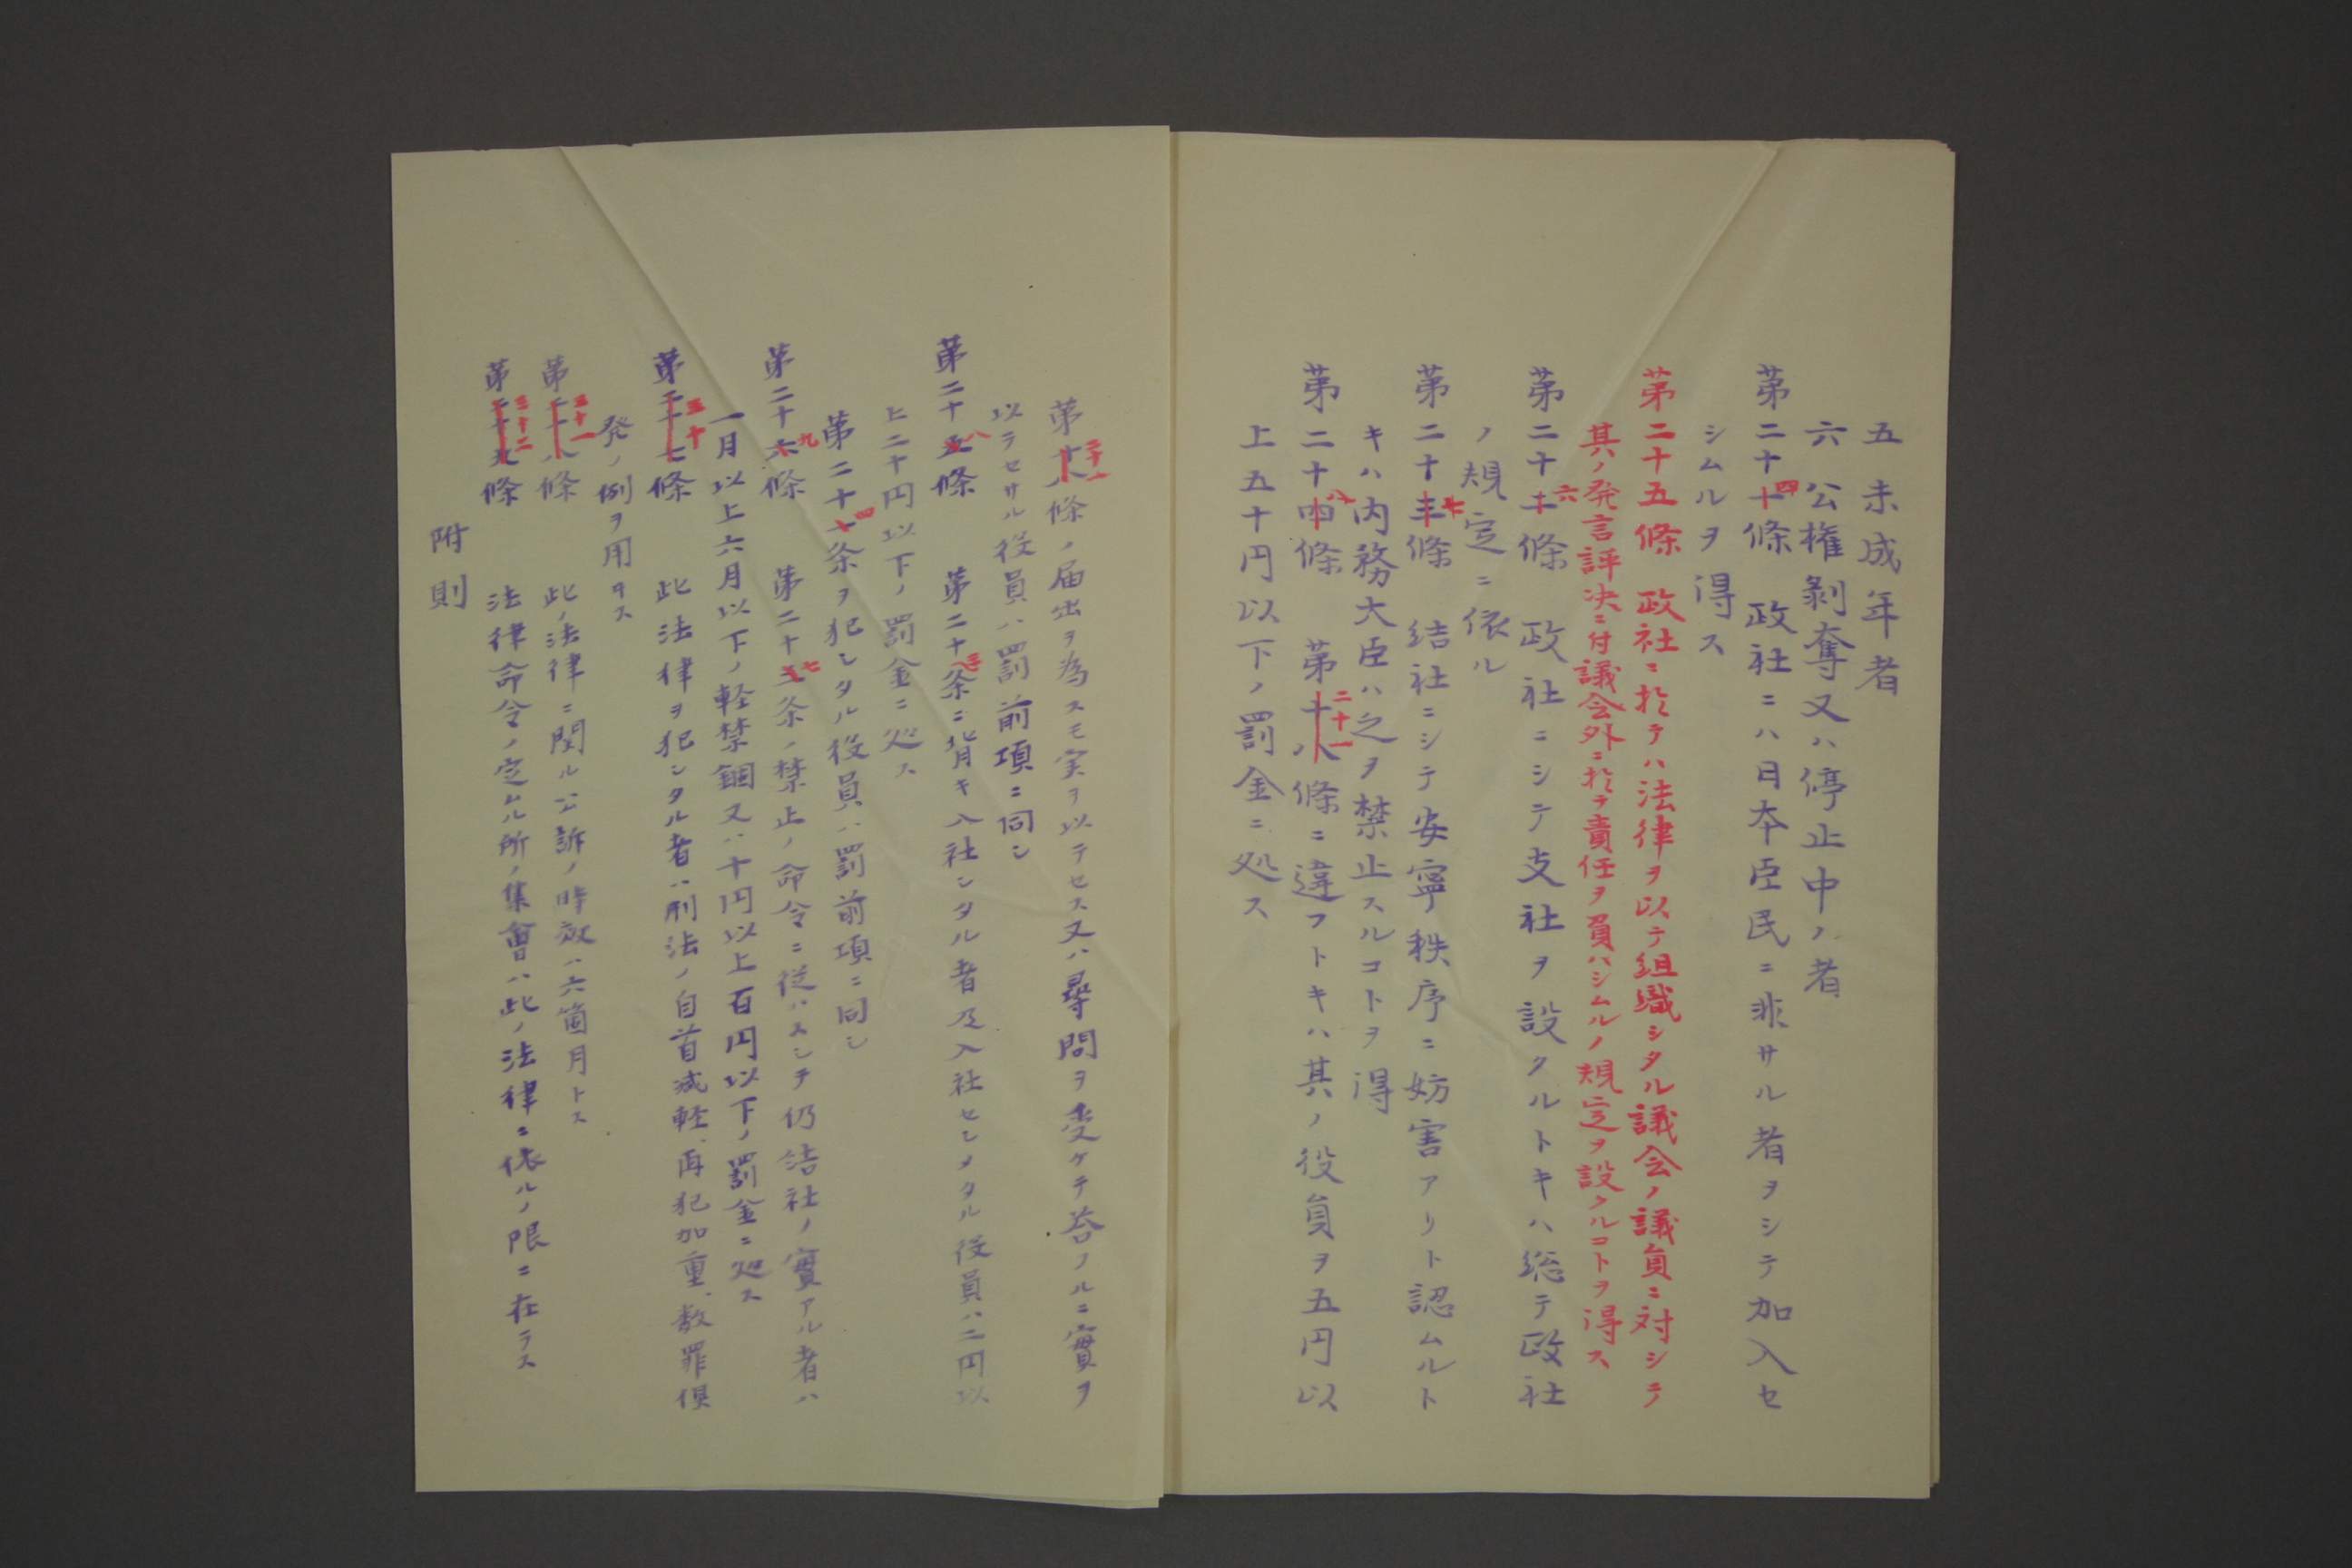 五未成年者
六公権剝奪又ハ停止中ノ者
第二十四條　政社ニハ日本臣民ニ非サル者ヲシテ加入セ
シムルヲ得ス
第二十五條　政社ニ於テハ法律ヲ以テ組織シタル議会ノ議員ニ対シテ
其ノ発言評決ニ付議会外ニ於テ責任ヲ負ハシムルノ規定ヲ設クルコトヲ得ス
第二十六條　政社ニシテ支社ヲ設クルトキハ総テ政社
ノ規定ニ依ル
第二十七條　結社ニシテ安寧秩序ニ妨害アリト認ムルト
キハ内務大臣ハ之ヲ禁止スルコトヲ得
第二十八條　第二十一條ニ違フトキハ其ノ役員ヲ五円以
上五十円以下ノ罰金ニ処ス
第二十一條ノ届出ヲ為スモ実ヲ以テセス又ハ尋問ヲ受ケテ答フルニ實ヲ
以テセサル役員ハ罰前項ニ同シ
第二十八條　第二十三条ニ背キ入社シタル者及入社セシメタル役員ハ二円以
上二十円以下ノ罰金ニ処ス
第二十四条ヲ犯シタル役員ハ罰前項ニ同シ
第二十九條　第二十七条ノ禁止ノ命令ニ従ハスシテ仍結社ノ實アル者ハ
一月以上六月以下ノ軽禁錮又ハ十円以上百円以下ノ罰金ニ処ス
第三十條　此法律ヲ犯シタル者ハ刑法ノ自首減軽、再犯加重、数罪倶
発ノ例ヲ用ヰス
第三十一條　此ノ法律ニ関ル公訴ノ時效ハ六箇月トス
第三十二條　法律命令ノ定ムル所ノ集會ハ此ノ法律ニ依ルノ限ニ在ラス
附則